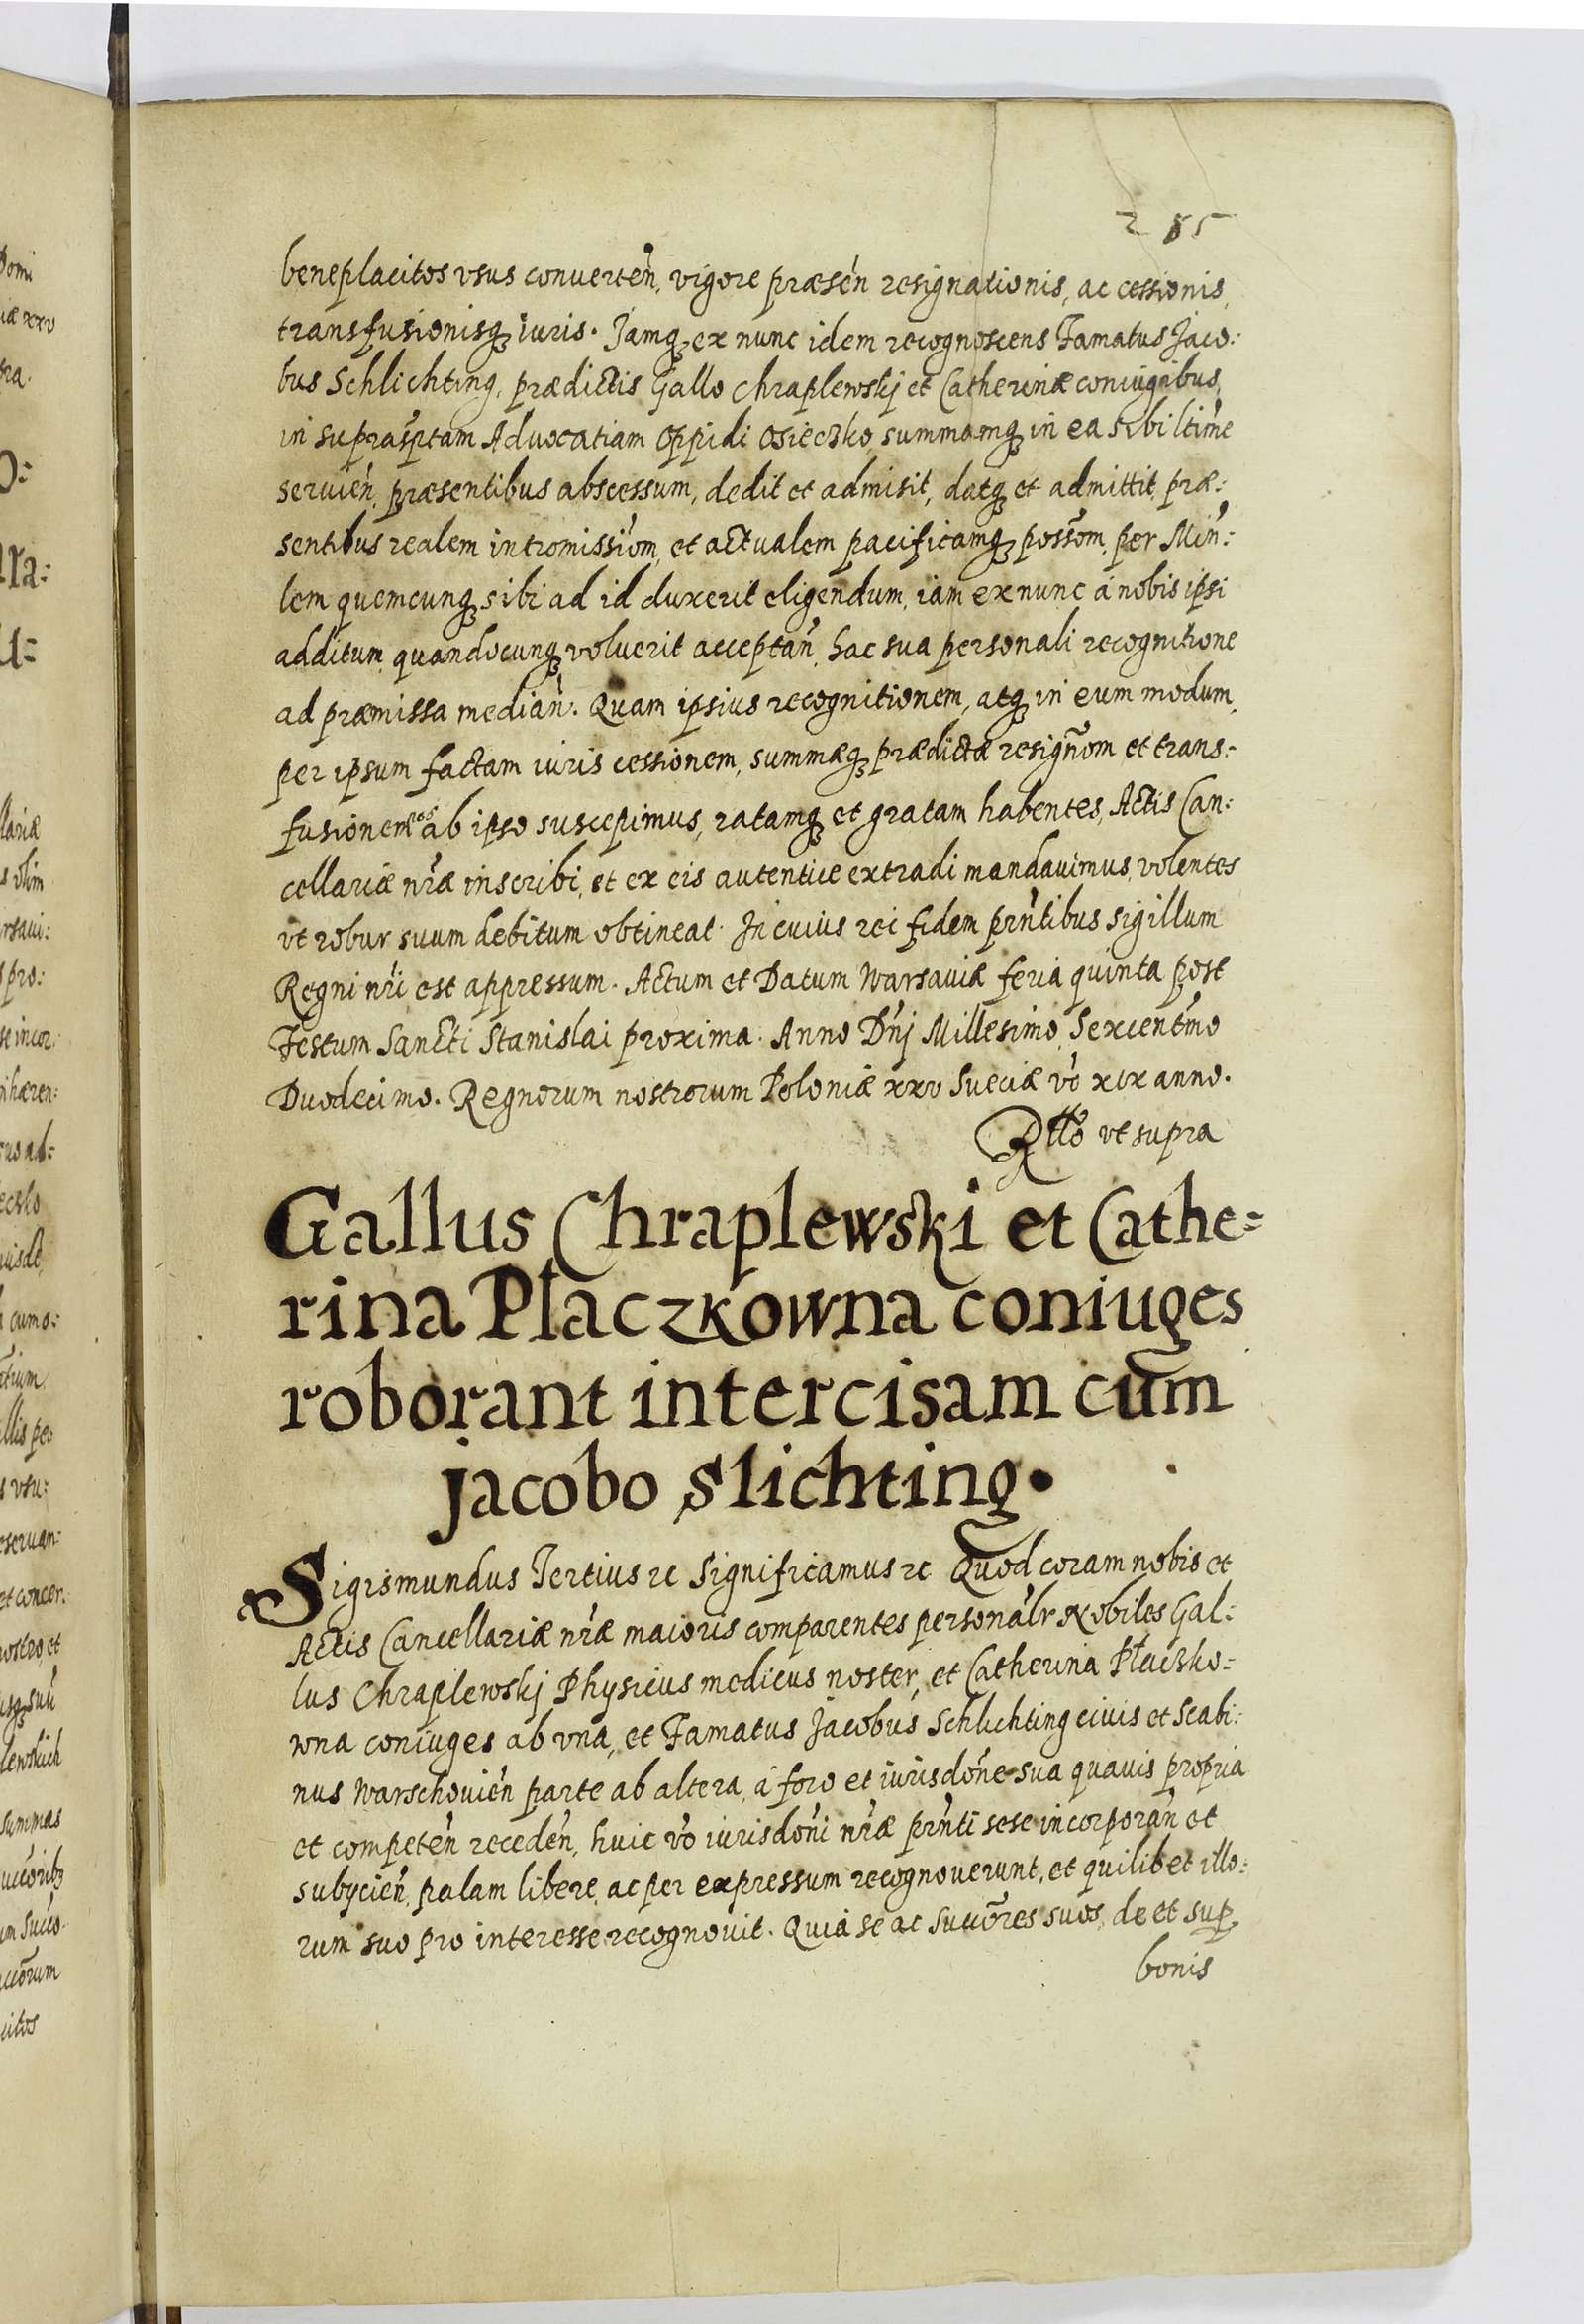 285
beneplacitos vsus conuerten̄, vigore præsen̄ resignationis, ac cessionis,
transfusionisq iuris. Jamq ex nunc idem recognoscens Famatus Jaco:
bus Schlichting, prædictis Gallo Chraplewskj et Catherinæ coniugibus,
in suprasptam Aduocatiam Oppidi Osieczko, summamq in ea sibi ltime
seruien̄, præsentibus abscessum, dedit et admisit, datq et admittit præ:
sentibus realem intromissiom, et actualem pacificamq possom, per Min:
lem quemcunq sibi ad id duxerit eligendum, iam ex nunc á nobis ipsi
additum quandocunq voluerit acceptan̄, hac sua personali recognitione
ad præmissa median̄. Quam ipsius recognitionem, atq in eum modum,
per ipsum factam iuris cessionem, summæq prædictæ resignom et trans:
fusionem ab ipso suscepimus, ratamq et gratam habentes, Actis Can:
cellariæ nræ inscribi, et ex eis autentice extradi mandauimus, volentes
vt robur suum debitum obtineat. In cuius rei fidem prntibus sigillum
Regni nri est appressum. Actum et Datum Warsauiæ feria quinta post
Festum Sancti Stanislai proxima. Anno Dnj Millesimo Sexcentmo
Duodecimo. Regnorum nostrorum Poloniæ xxv Sueciæ vo xix anno.
Rtto vt supra
Gallus Chraplewski et Cathe=
rina Płaczkowna coniuges
roborant intercisam cum
jacobo slichting.
Sigismundus Tertius rc Significamus rc Quod coram nobis et
Actis Cancellariæ nræ maioris comparentes personalr Nobiles Gal:
lus Chraplewskj Physicus medicus noster, et Catherina Płaczko=
wna coniuges ab vna, et Famatus Jacobus Schlichting ciuis et Scabi:
nus Warschouien̄ parte ab altera, á foro et iurisdone sua quauis propria
et competen̄ receden̄, huic vo iurisdoni nræ prnti sese incorporan̄ et
subycien̄, palam libere, ac per expressum recognouerunt, et quilibet illo:
rum suo pro interesse recognouit. Quia se ac Succores suos, de et sup
bonis